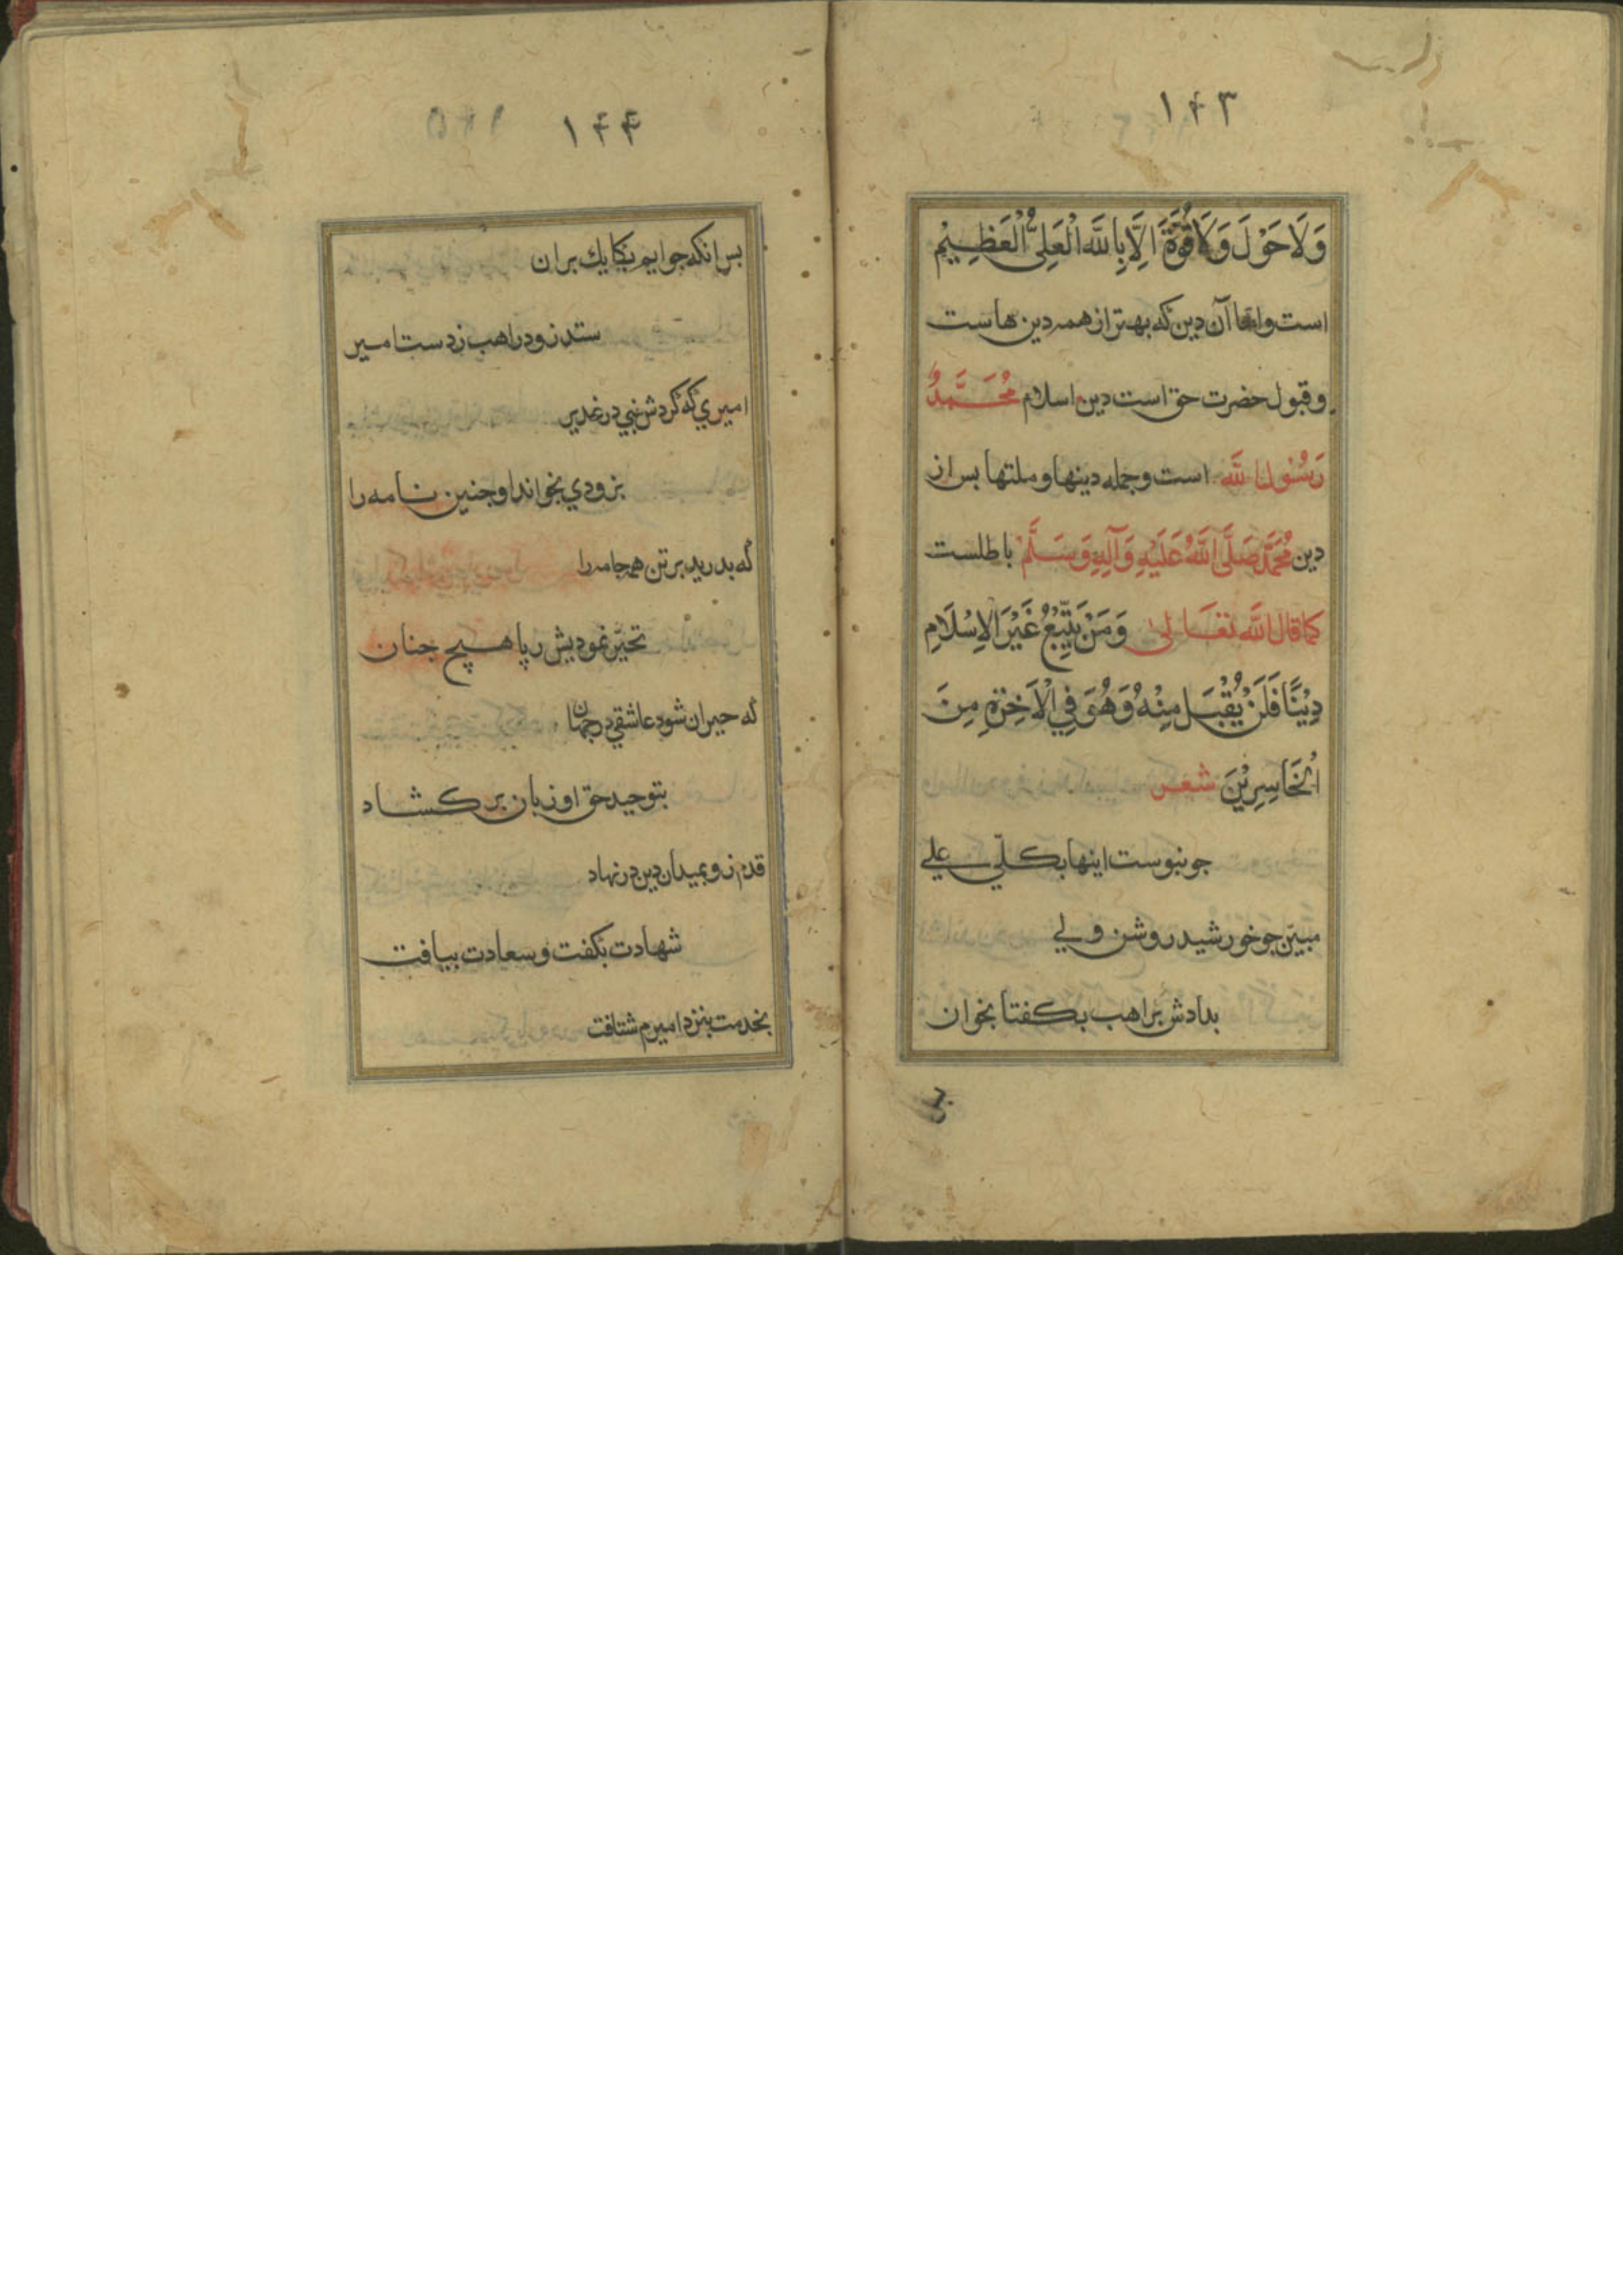 ۱۴۳
وَلَا حَوْلَ وَلَا قُوَّةَ اِلَّا بِاللَّهِ الْعَلِيِّ الْعَظِيْمِ
است واما آن دین که بهتر از همه دین هاست
وقبول حضرت حق است دین اسلام مُحَمَّدٌ
رَسُوْلُ اللَّه است وجمله دینها وملتها بس از
دین مُحَمَّد صَلَّى اللَّهُ عَلَيْهِ وَآلِهِ وَسَلَّمْ باطلست
كما قال اللَّه تعَالىٰ وَمَنْ يَتَّبِعْ غَيْرَ الْاِسْلَامِ
دِيْنًا فَلَنْ يُقْبَلَ مِنْهُ وَهُوَ فِي الْآخِرَةِ مِنَ
الْخَاسِرِيْنَ شعر
جو بنوست اینها بکلّي علي
مبیّن جو خورشید روشن ولي
بدادش براهب بکفتا بخوان
۱۴۴
بس انکه جوابم بکایك بران
ستد زود راهب ز دست امیر
امیري که کردش نبي در غدیر
بزودي بخواند او جنین نامه را
که بدرید بر تن همه جامه را
تحیّر نمودیش رپا هیچ جنان
که حیران شود عاشقي در جهان
بتوحید حق او زبان بر کشاد
قدم زو بمیدان دین در نهاد
شهادت بکفت وسعادت بیافت
بخدمت بنزد امیرم شتافت